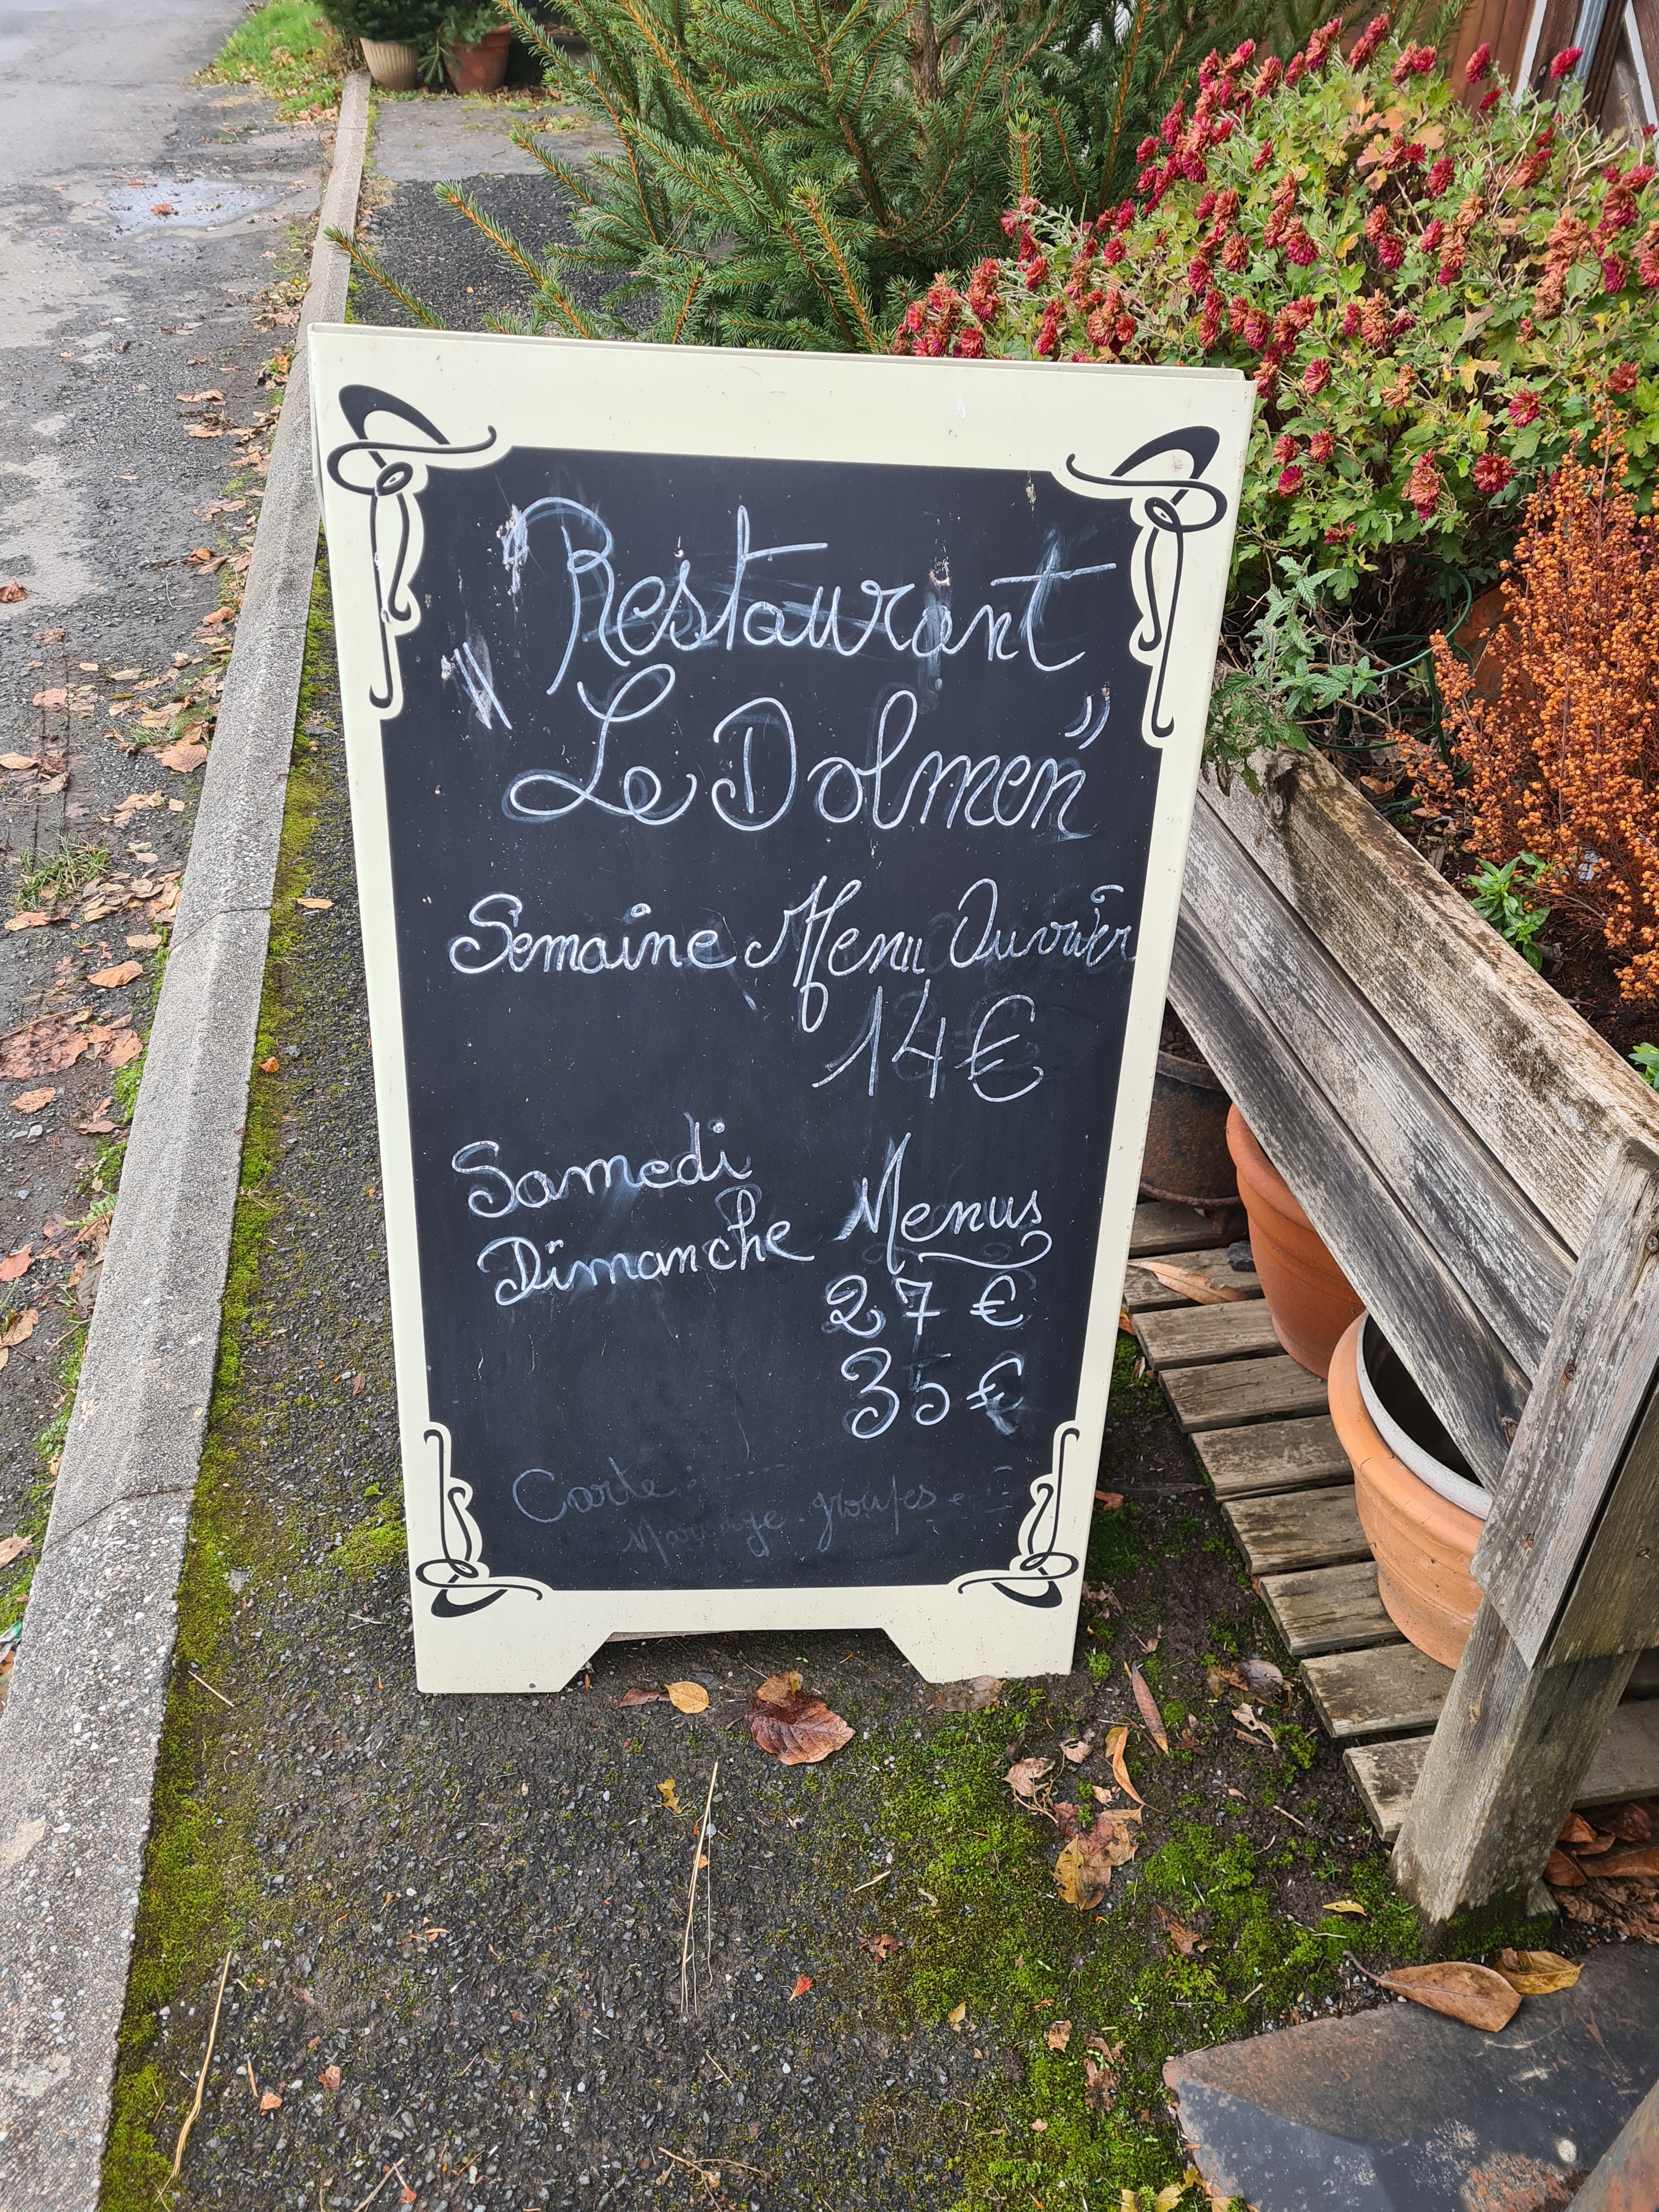 Restaurant
"Le Dolmen"
Semaine Menu Ouvrier
14€
Samedi
Dimanche Menus
27 €
35 €
Carte
Mariage groupes